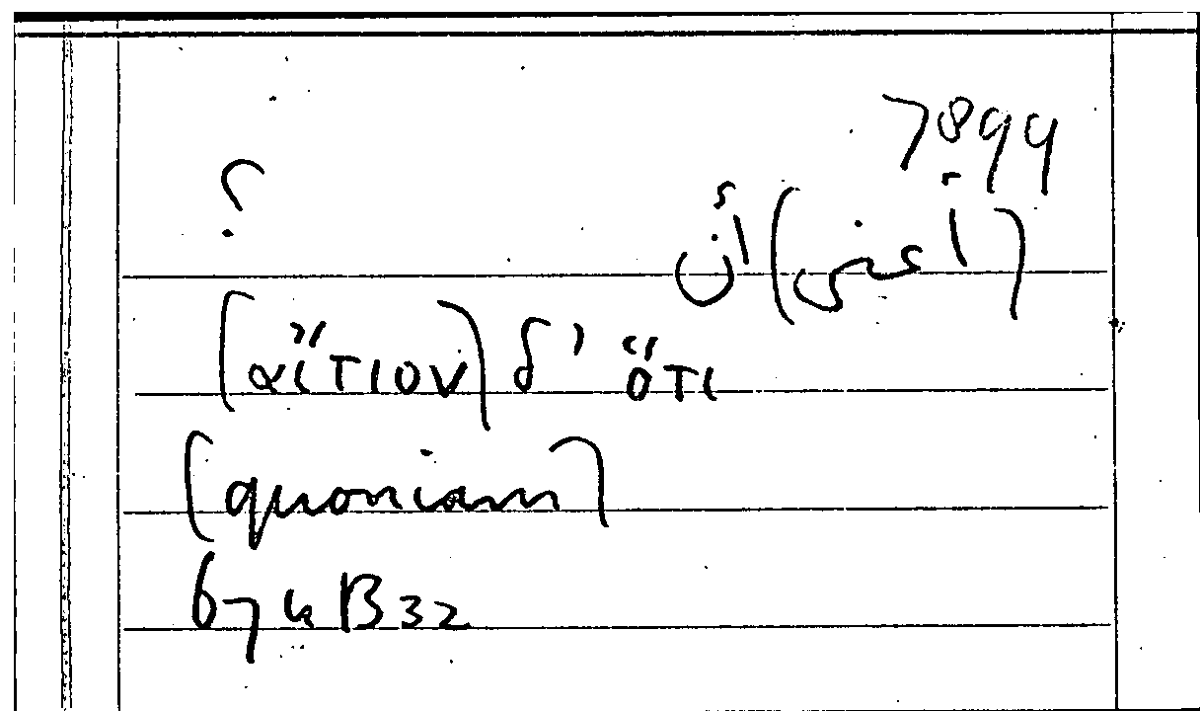 7899
(أعني) أن ؟
(αἴτιον) δ' ὅτι
(quoniam)
674B32